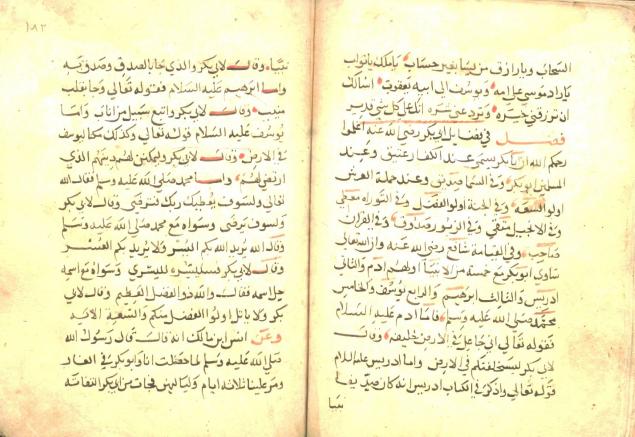 السحاب ويا رازق من يشا بغير حساب يا ملك يا تواب
يا راد موسى على امه ويوسف الى ابيه يعقوب اسالك
ان ترزقني وترد على انك على كل شي قدير
فصل في فضايل ابي بكر رضي الله عنه اعلموا
رحمكم الله ان ابا بكر يسمى عند الكفار عتيق وعند
المسلمين ابو بكر وفي السما صديق وعند حملة العرش
اولو السعة وفي الجنة اولو الفضل وفي التوراه معطي
وفي الانجيل متقي وفي الزبور صدوق وفي القران
صاحب وفي القيامة شافع رضي الله عنه وان الله تعالى
ساوى ابو بكر مع خمسة من الانبيا اولهم ادم والثاني
ادريس والثالث ابرهيم والرابع يوسف والخامس
محمد صلى الله عليه وسلم فاما ادم عليه السلام
فقوله تعالى اني جاعل في الارض خليفه وقال
لابي بكر ليستخلفنكم في الارض واما ادريس عليه السلام
قوله تعالى واذكر في الكتاب ادريس انه كان صديقا
نبيا
١٨٢
نبيا وقال لابي بكر والذي جا بالصدق وصدق به
واما ابرهيم عليه السلام فقوله تعالى وجا بقلب
منيب وقال لابي بكر واتبع سبيل من اناب واما
يوسف عليه السلام قوله تعالى وكذلك مكنا ليوسف
في الارض وقال لابي بكر وليمكنن لهم دينهم الذي
ارتضى لهم واما محمد صلى الله عليه وسلم فقال الله
تعالى ولسوف يعطيك ربك فترضى وقال لابي بكر
ولسوف يرضى وسواه مع محمد صلى الله عليه وسلم
وقال الله يريد الله بكم اليسر ولا يريد بكم العسر
وقال لابي بكر فسنيسره لليسرى وسواه مع اسمه
جل اسمه فقال والله ذو الفضل العظيم وقال لابي
بكر ولا ياتل اولوا الفضل منكم والسعة الايه
وعن انس ابن مالك انه قال قال رسول الله
صلى الله عليه وسلم لما حصلت انا وابو بكر في الغار
ومر علينا ثلاثة ايام من ابي بكر التفاتة